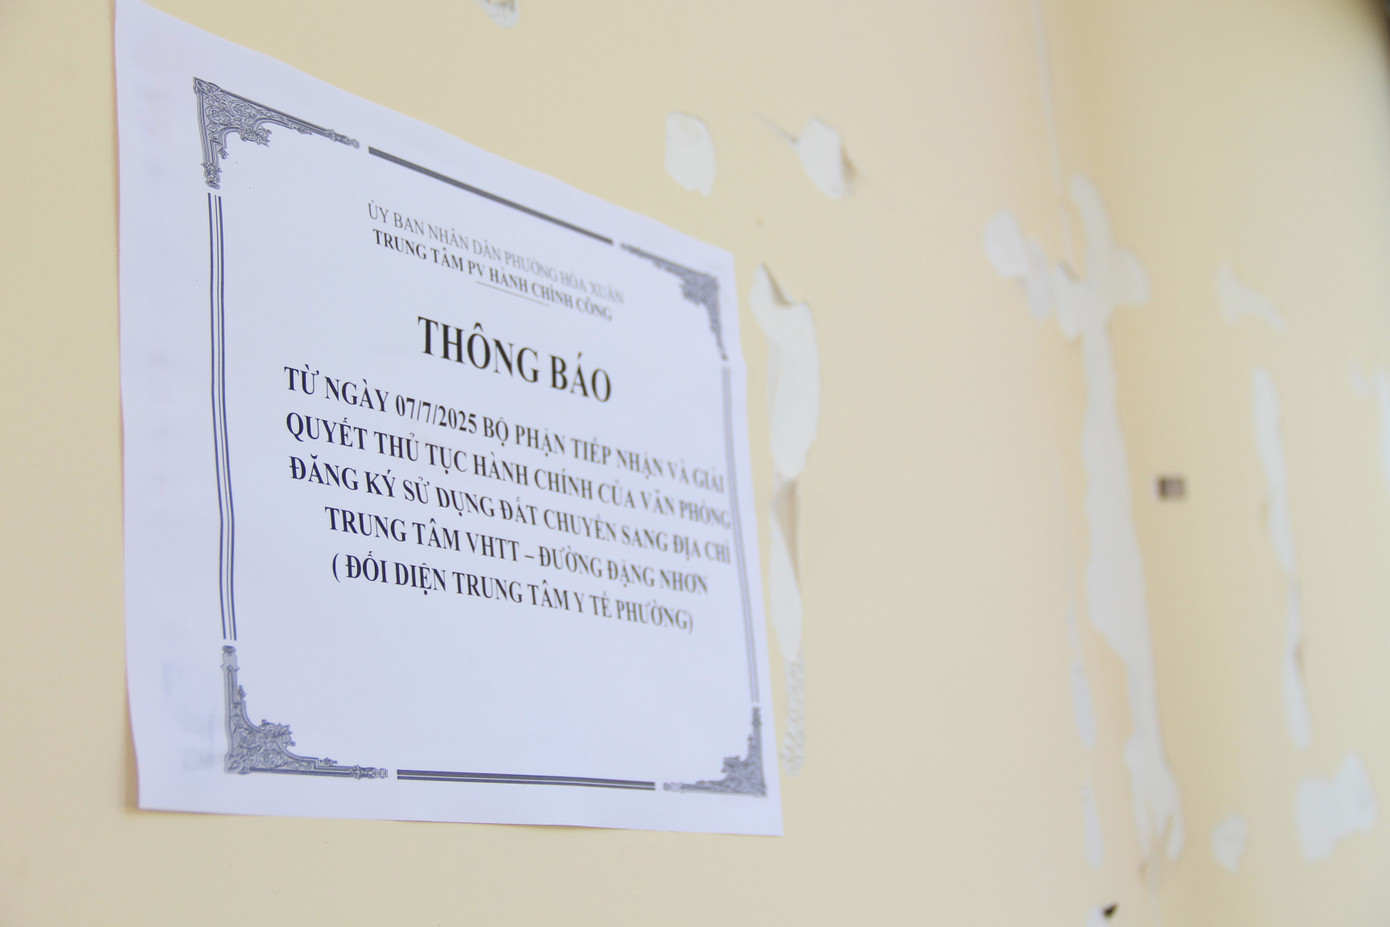 ỦY BAN NHÂN DÂN PHƯỜNG HÒA XUÂN
TRUNG TÂM PV HÀNH CHÍNH CÔNG
THÔNG BÁO
TỪ NGÀY 07/7/2025 BỘ PHẬN TIẾP NHẬN VÀ GIẢI
QUYẾT THỦ TỤC HÀNH CHÍNH CỦA VĂN PHÒNG
ĐĂNG KÝ SỬ DỤNG ĐẤT CHUYỂN SANG ĐỊA CHỈ
TRUNG TÂM VHTT – ĐƯỜNG ĐẶNG NHƠN
( ĐỐI DIỆN TRUNG TÂM Y TẾ PHƯỜNG)